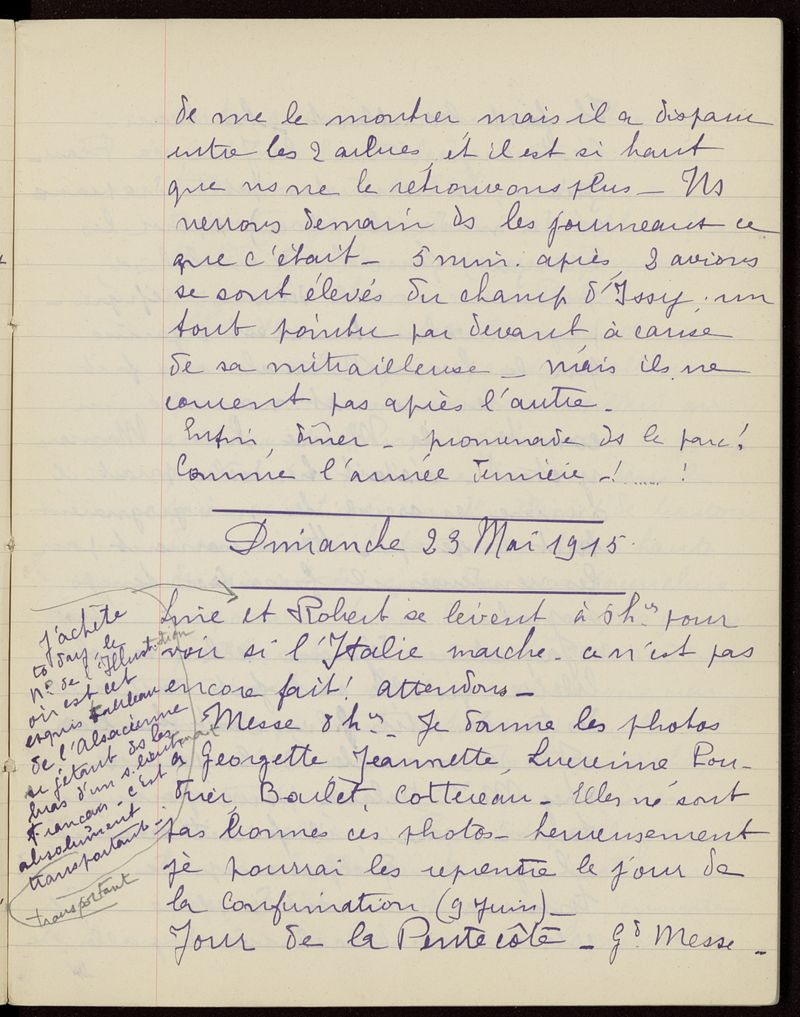 de me le montrer mais il a disparu
entre les 2 arbres, et il est si haut
que ns ne le retrouvons plus — Ns
verrons demain ds les journeaux ce
que c'était — 5 min. après, 2 avions
se sont élevés du champ d'Issy. un
tout pointu par devant, à cause
de sa mitrailleuse — mais ils ne
courent pas après l'autre.
Enfin, dîner — promenade ds le parc!
Comme l'année dernière —!.....!
Dimanche 23 Mai 1915.
et Robert se lèvent à 6 hres pour
voir si l'Italie marche. ce n'est pas
encore fait! attendons —
Messe 8 hres. Je donne les photos
à Georgette, Jeannette,
Boulet, Cottereau — Elles ne sont
pas bonnes ces photos — heureusement
je pourrai les reprendre le jour de
la Confirmation (9 Juin) —
Jour de la Pentecôte — Gd Messe —
J'achète
to day le
No de l'Illustration
où est cet
exquis tableau
de l'Alsacienne
se jetant ds les
bras d'un s. lieut
Français — c'est
absolument
transportant —.
transportant